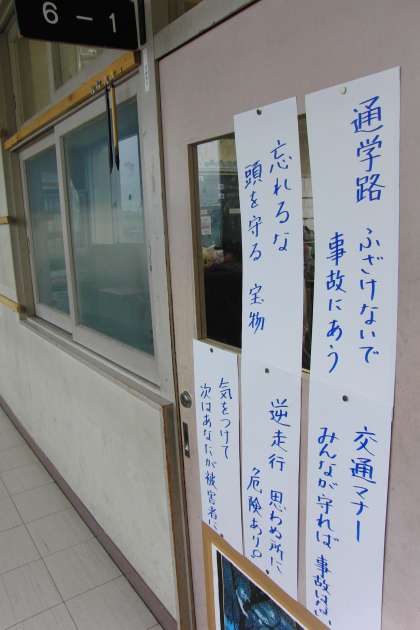 6-1
通学路 ふざけないで
事故にあう
忘れるな
頭を守る 宝物
交通マナー
みんなが守れば 事故はない
逆走行 思わぬ所に
危険あり。
気をつけて
次はあなたが被害者に